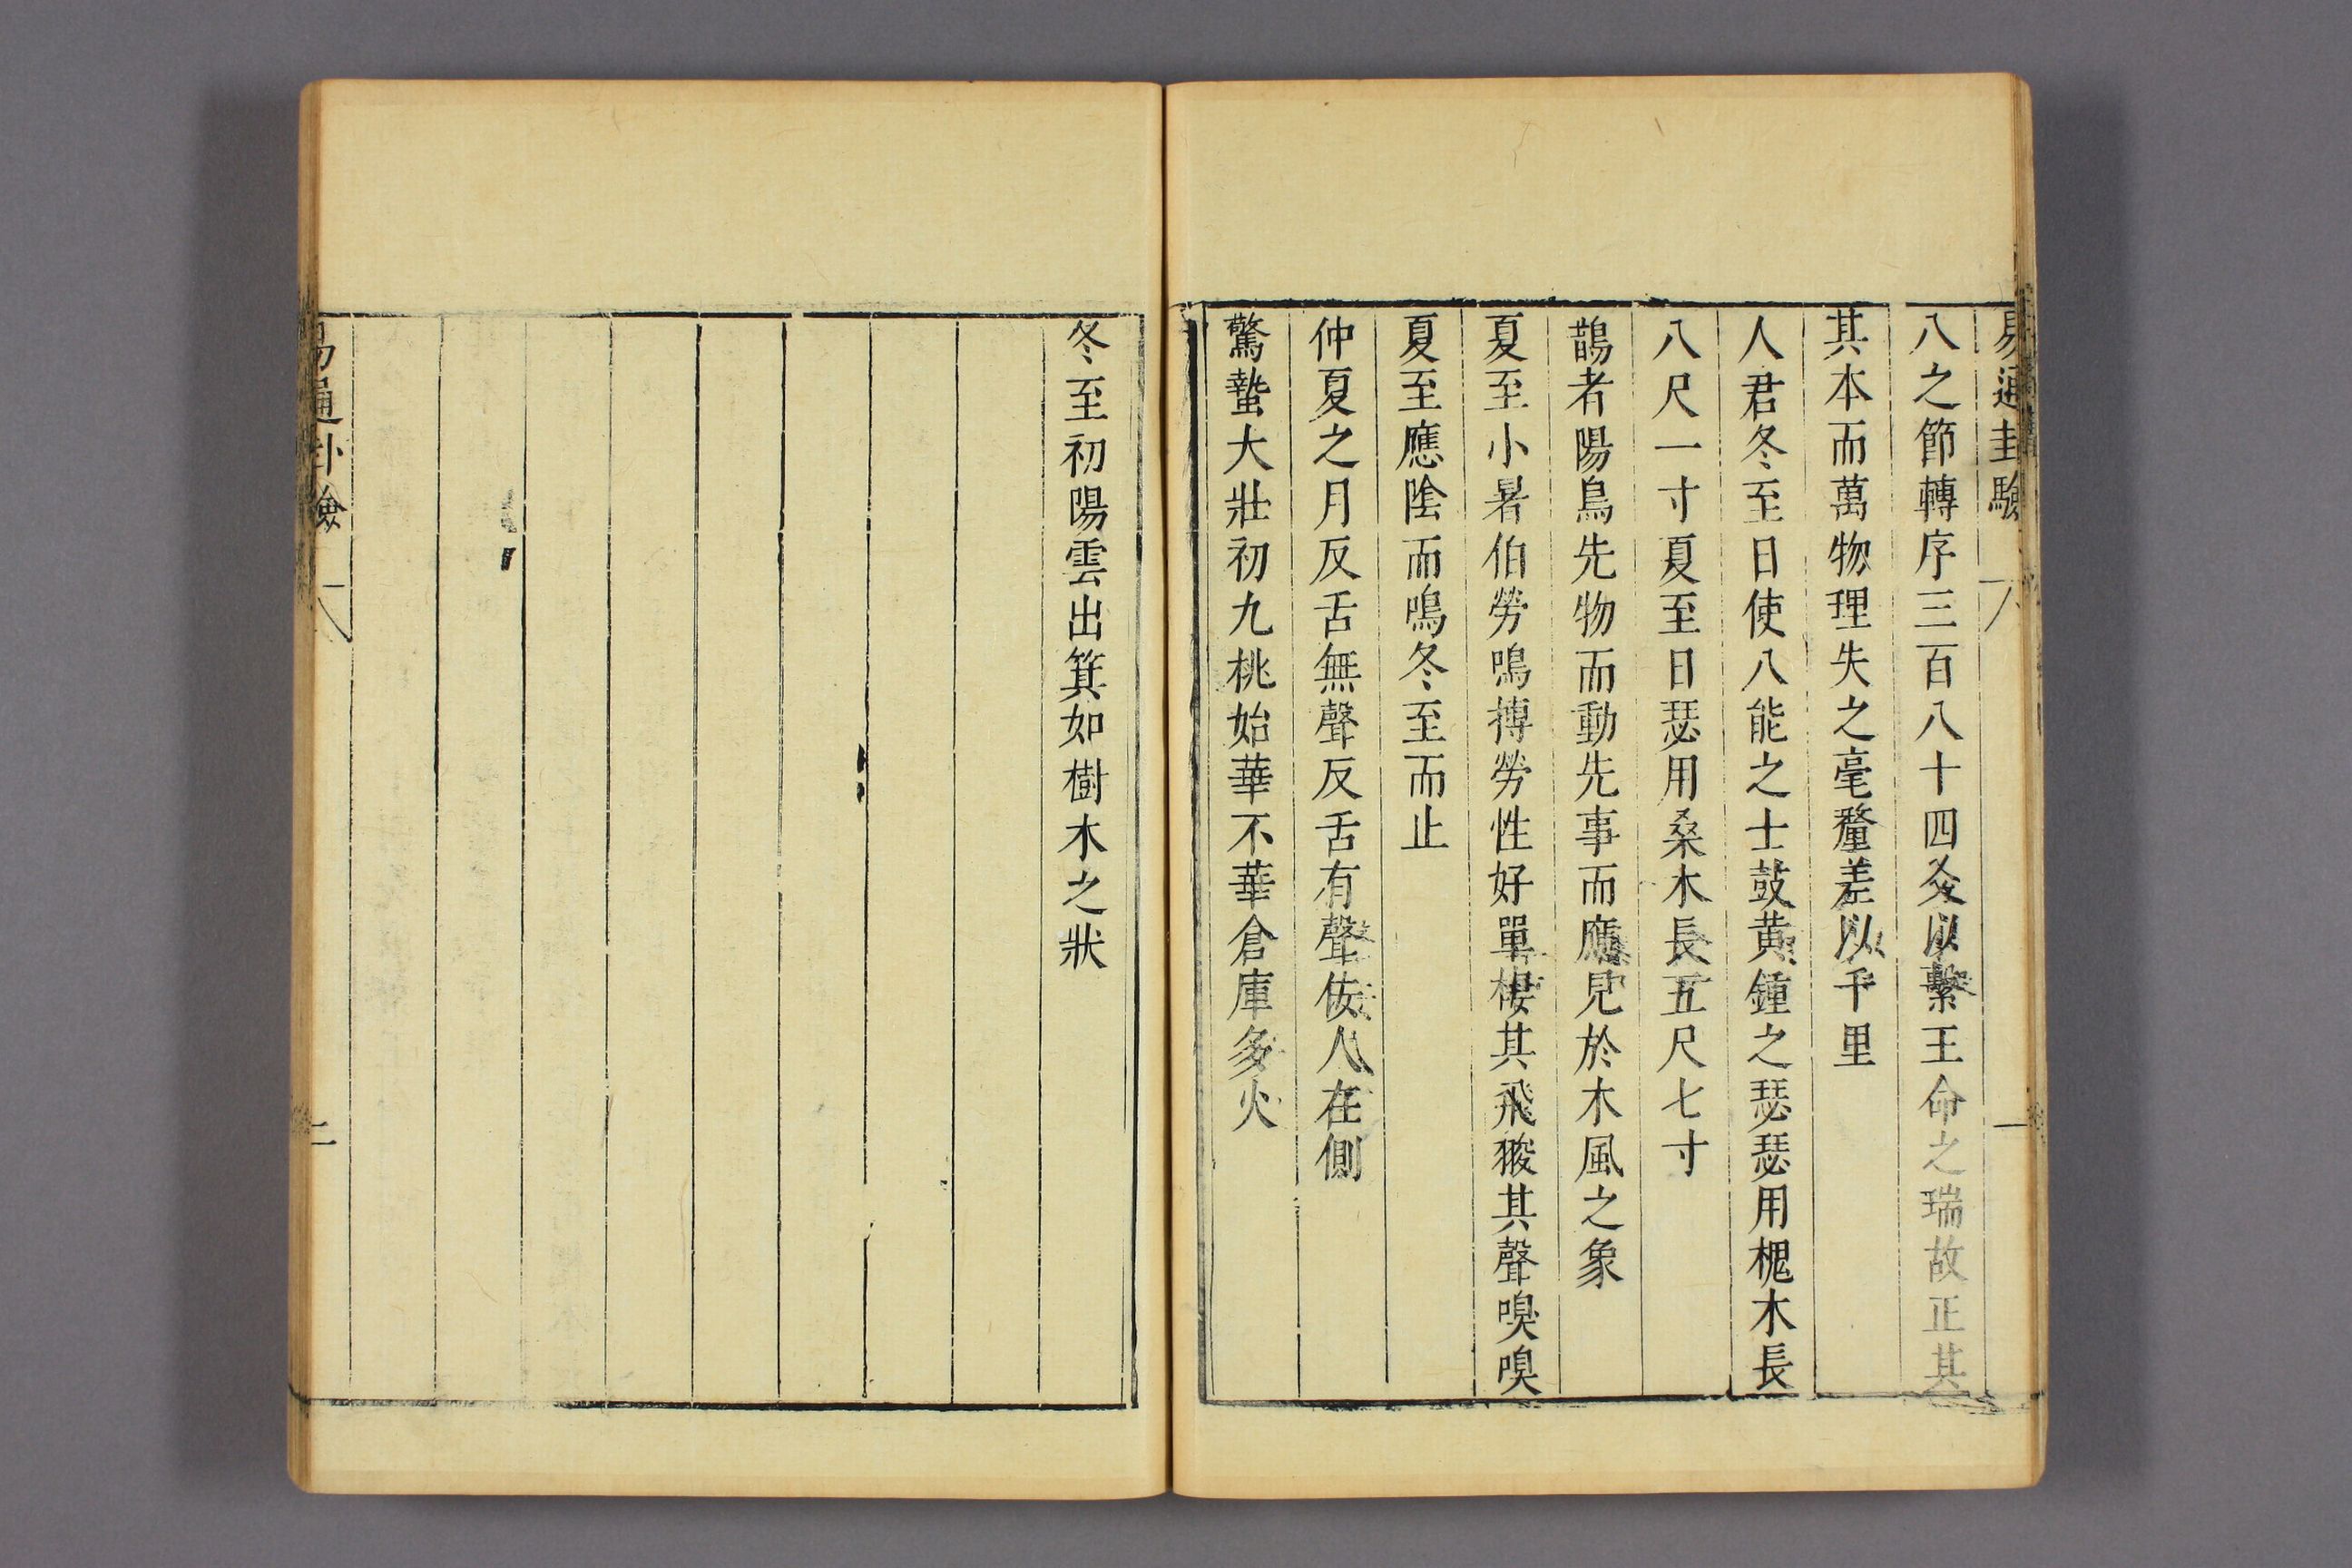 易通卦驗 一
八之節轉序三百八十四爻以繫王命之瑞故正其
其本而萬物理失之毫釐差以千里
人君冬至日使八能之士鼓黃鍾之瑟瑟用槐木長
八尺一寸夏至日瑟用桑木長五尺七寸
鵲者陽鳥先物而動先事而應見於木風之象
夏至小暑伯勞鳴搏勞性好單棲其飛㚇其聲嗅嗅
夏至應陰而鳴冬至而止
仲夏之月反舌無聲反舌有聲佞人在側
驚蟄大壯初九桃始華不華倉庫多火
冬至初陽雲出箕如樹木之狀
易通卦驗 二